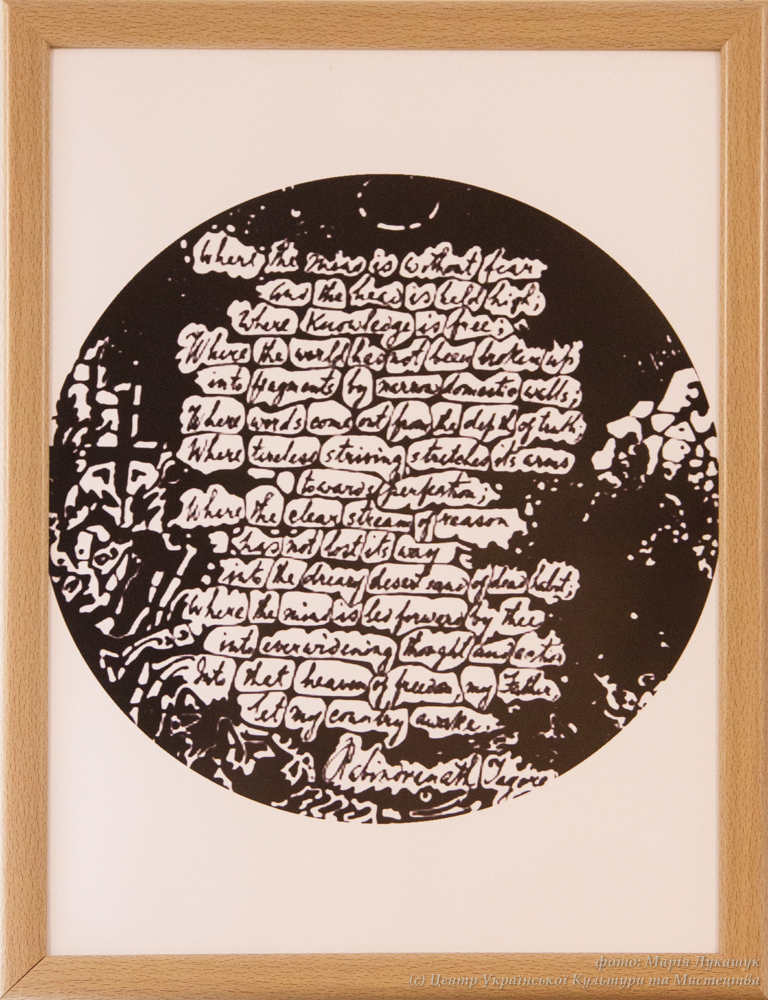 Where the mind is without fear
and the head is held high;
Where Knowledge is free;
Where the world has not been broken up
into fragments by narrow domestic walls;
Where words come out from the depth of truth;
Where tireless striving stretches its arms
towards perfection;
Where the clear stream of reason
has not lost its way
into the dreary desert sand of dead habit;
Where the mind is led forward by thee
into everwidening thought and action
Into that heaven of freedom, my Father,
let my country awake.
Rabindranath Tagore
фото: Марія Лукащук
(c) Центр Української Культури та Мистецтва